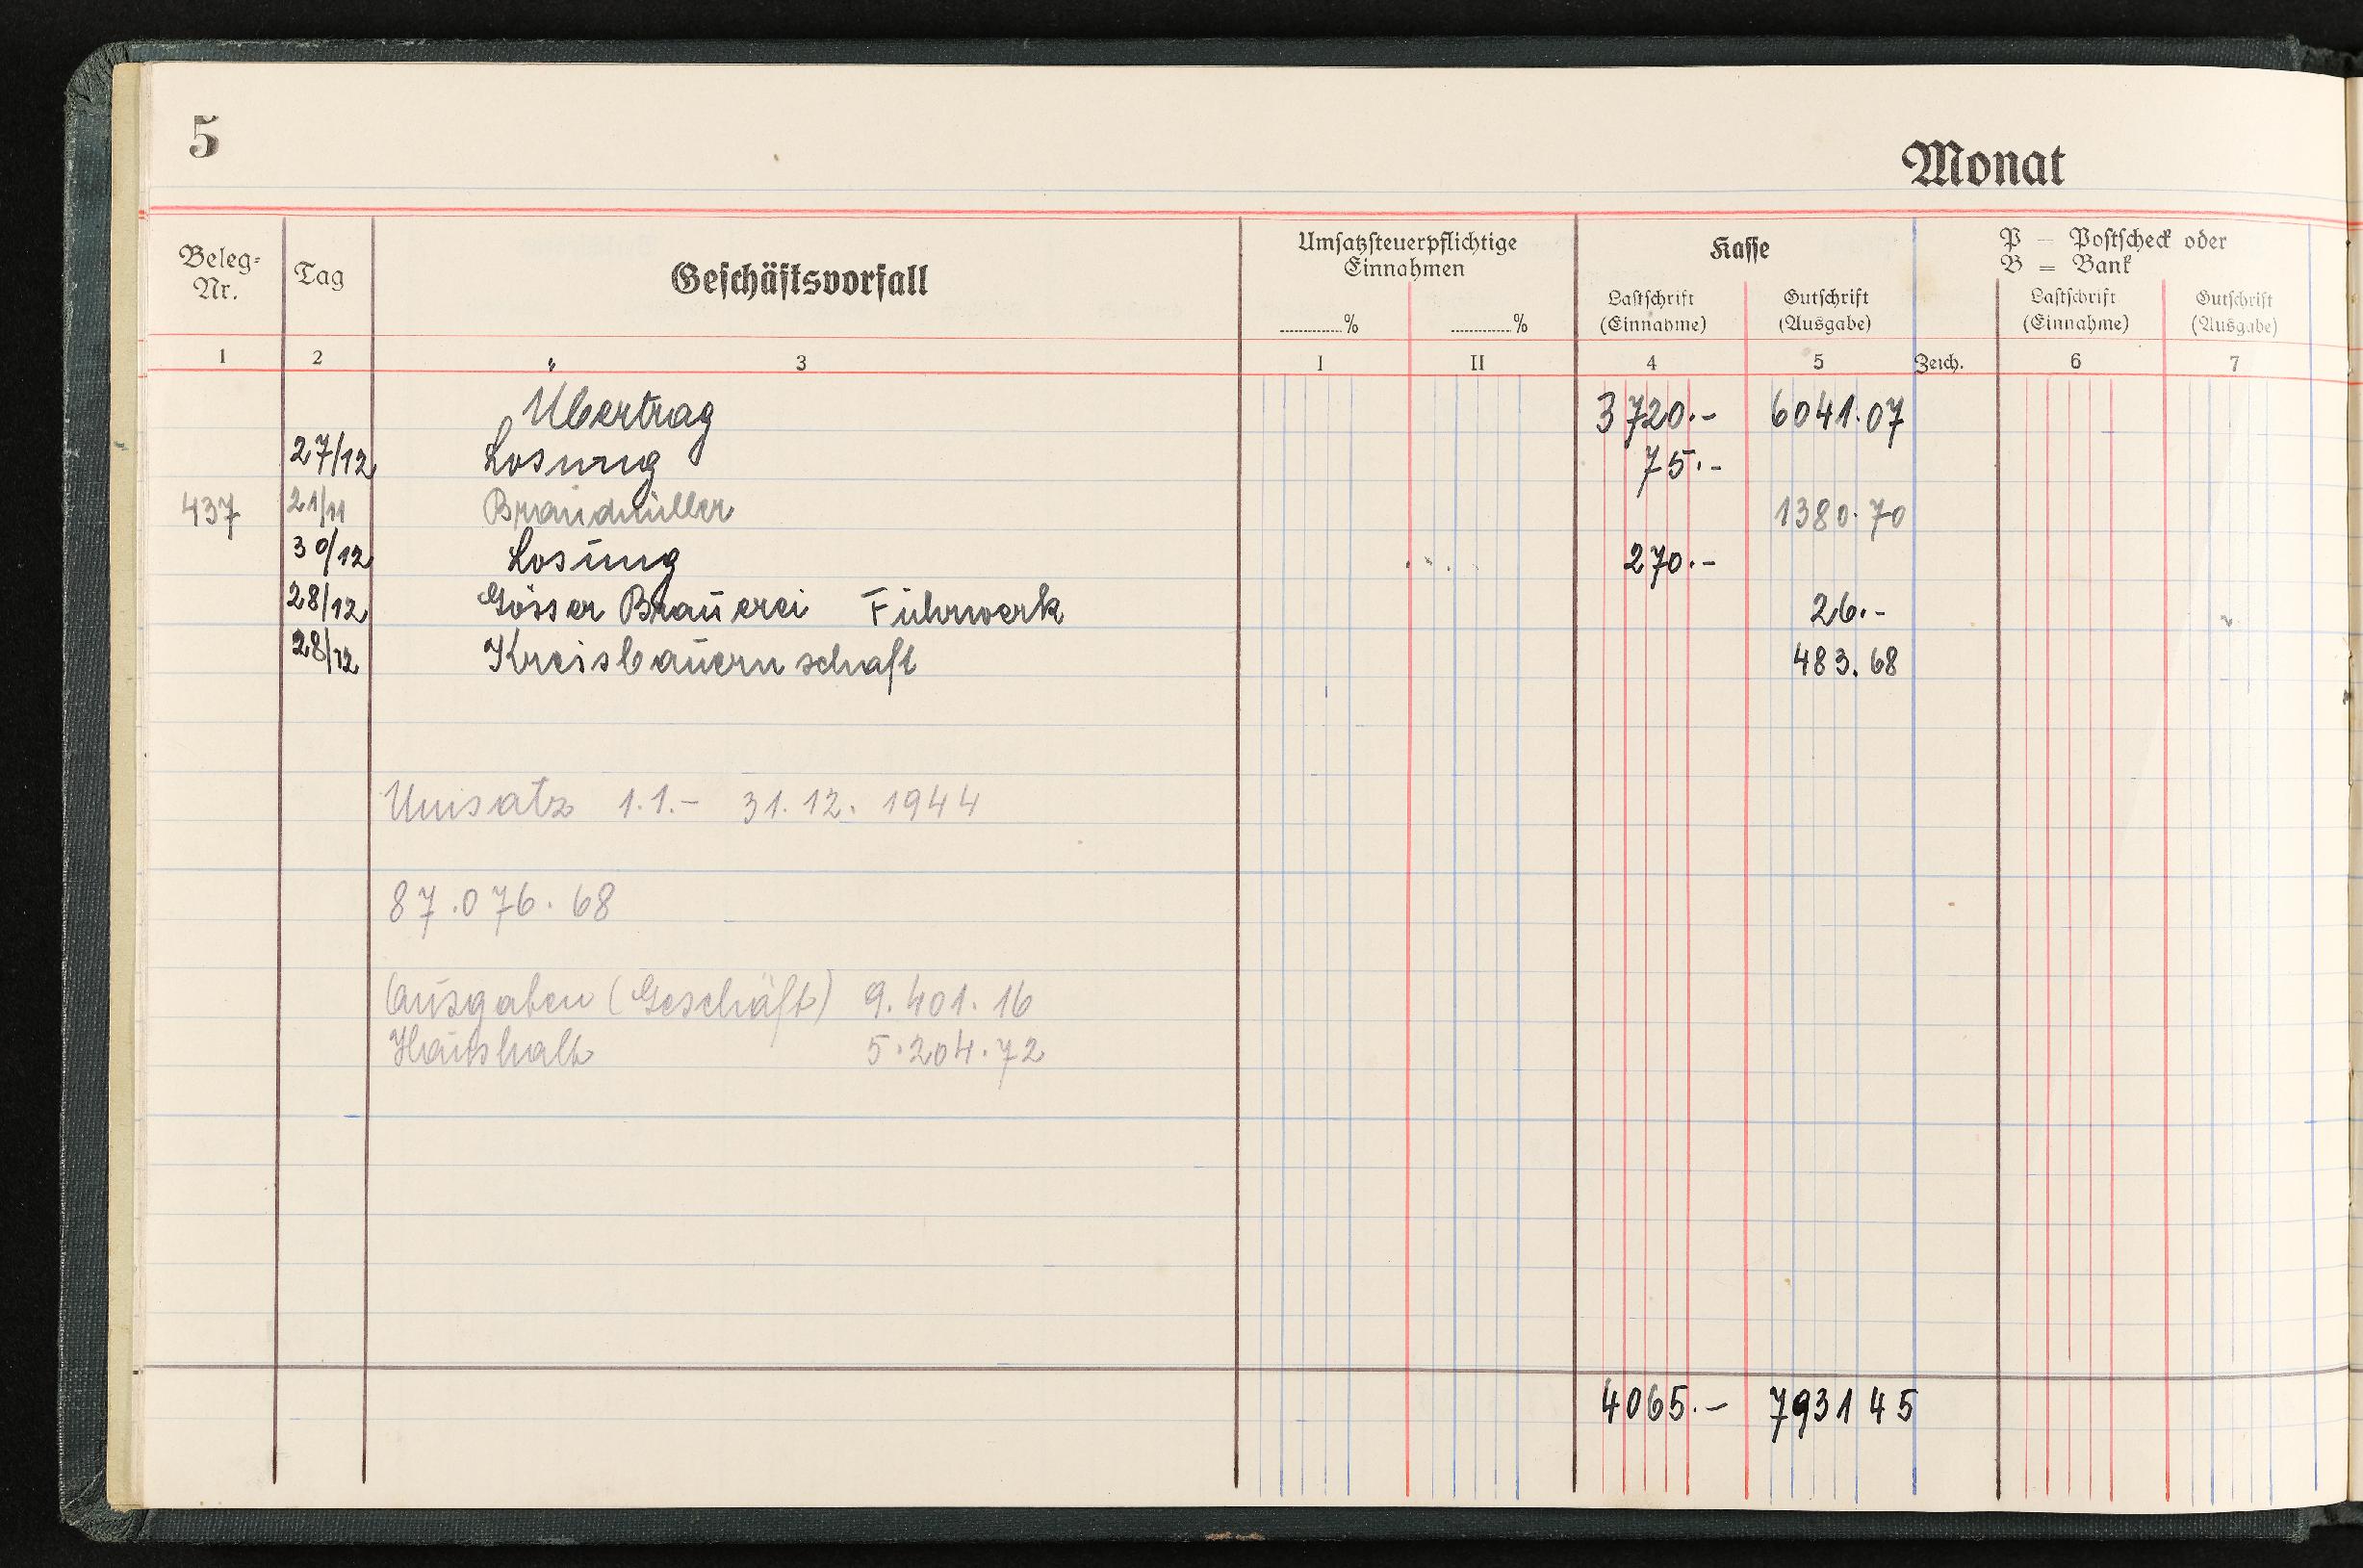 5
Monat
Beleg-
Nr.
Tag
Geschäftsvorfall
Umsatzsteuerpflichtige
Einnahmen
............% ............%
Kasse
Lastschrift
(Einnahme)
Gutschrift
(Ausgabe)
P = Postscheck oder
B = Bank
Lastschrift
(Einnahme)
Gutschrift
(Ausgabe)
1 2 3 I II 4 5 Zeich. 6 7
Übertrag 3720.- 6041.07
27/12 Losung 75.-
437 21/11 Brandmüller 1380.70
30/12 Losung 270.-
28/12 Gösser Brauerei Fuhrwerk 26.-
28/12 Kreisbauernschaft 483.68
Umsatz 1.1.- 31.12. 1944
87.076.68
Ausgaben (Geschäft) 9.401.16
Haushalt 5.204.72
4065.- 7931 45